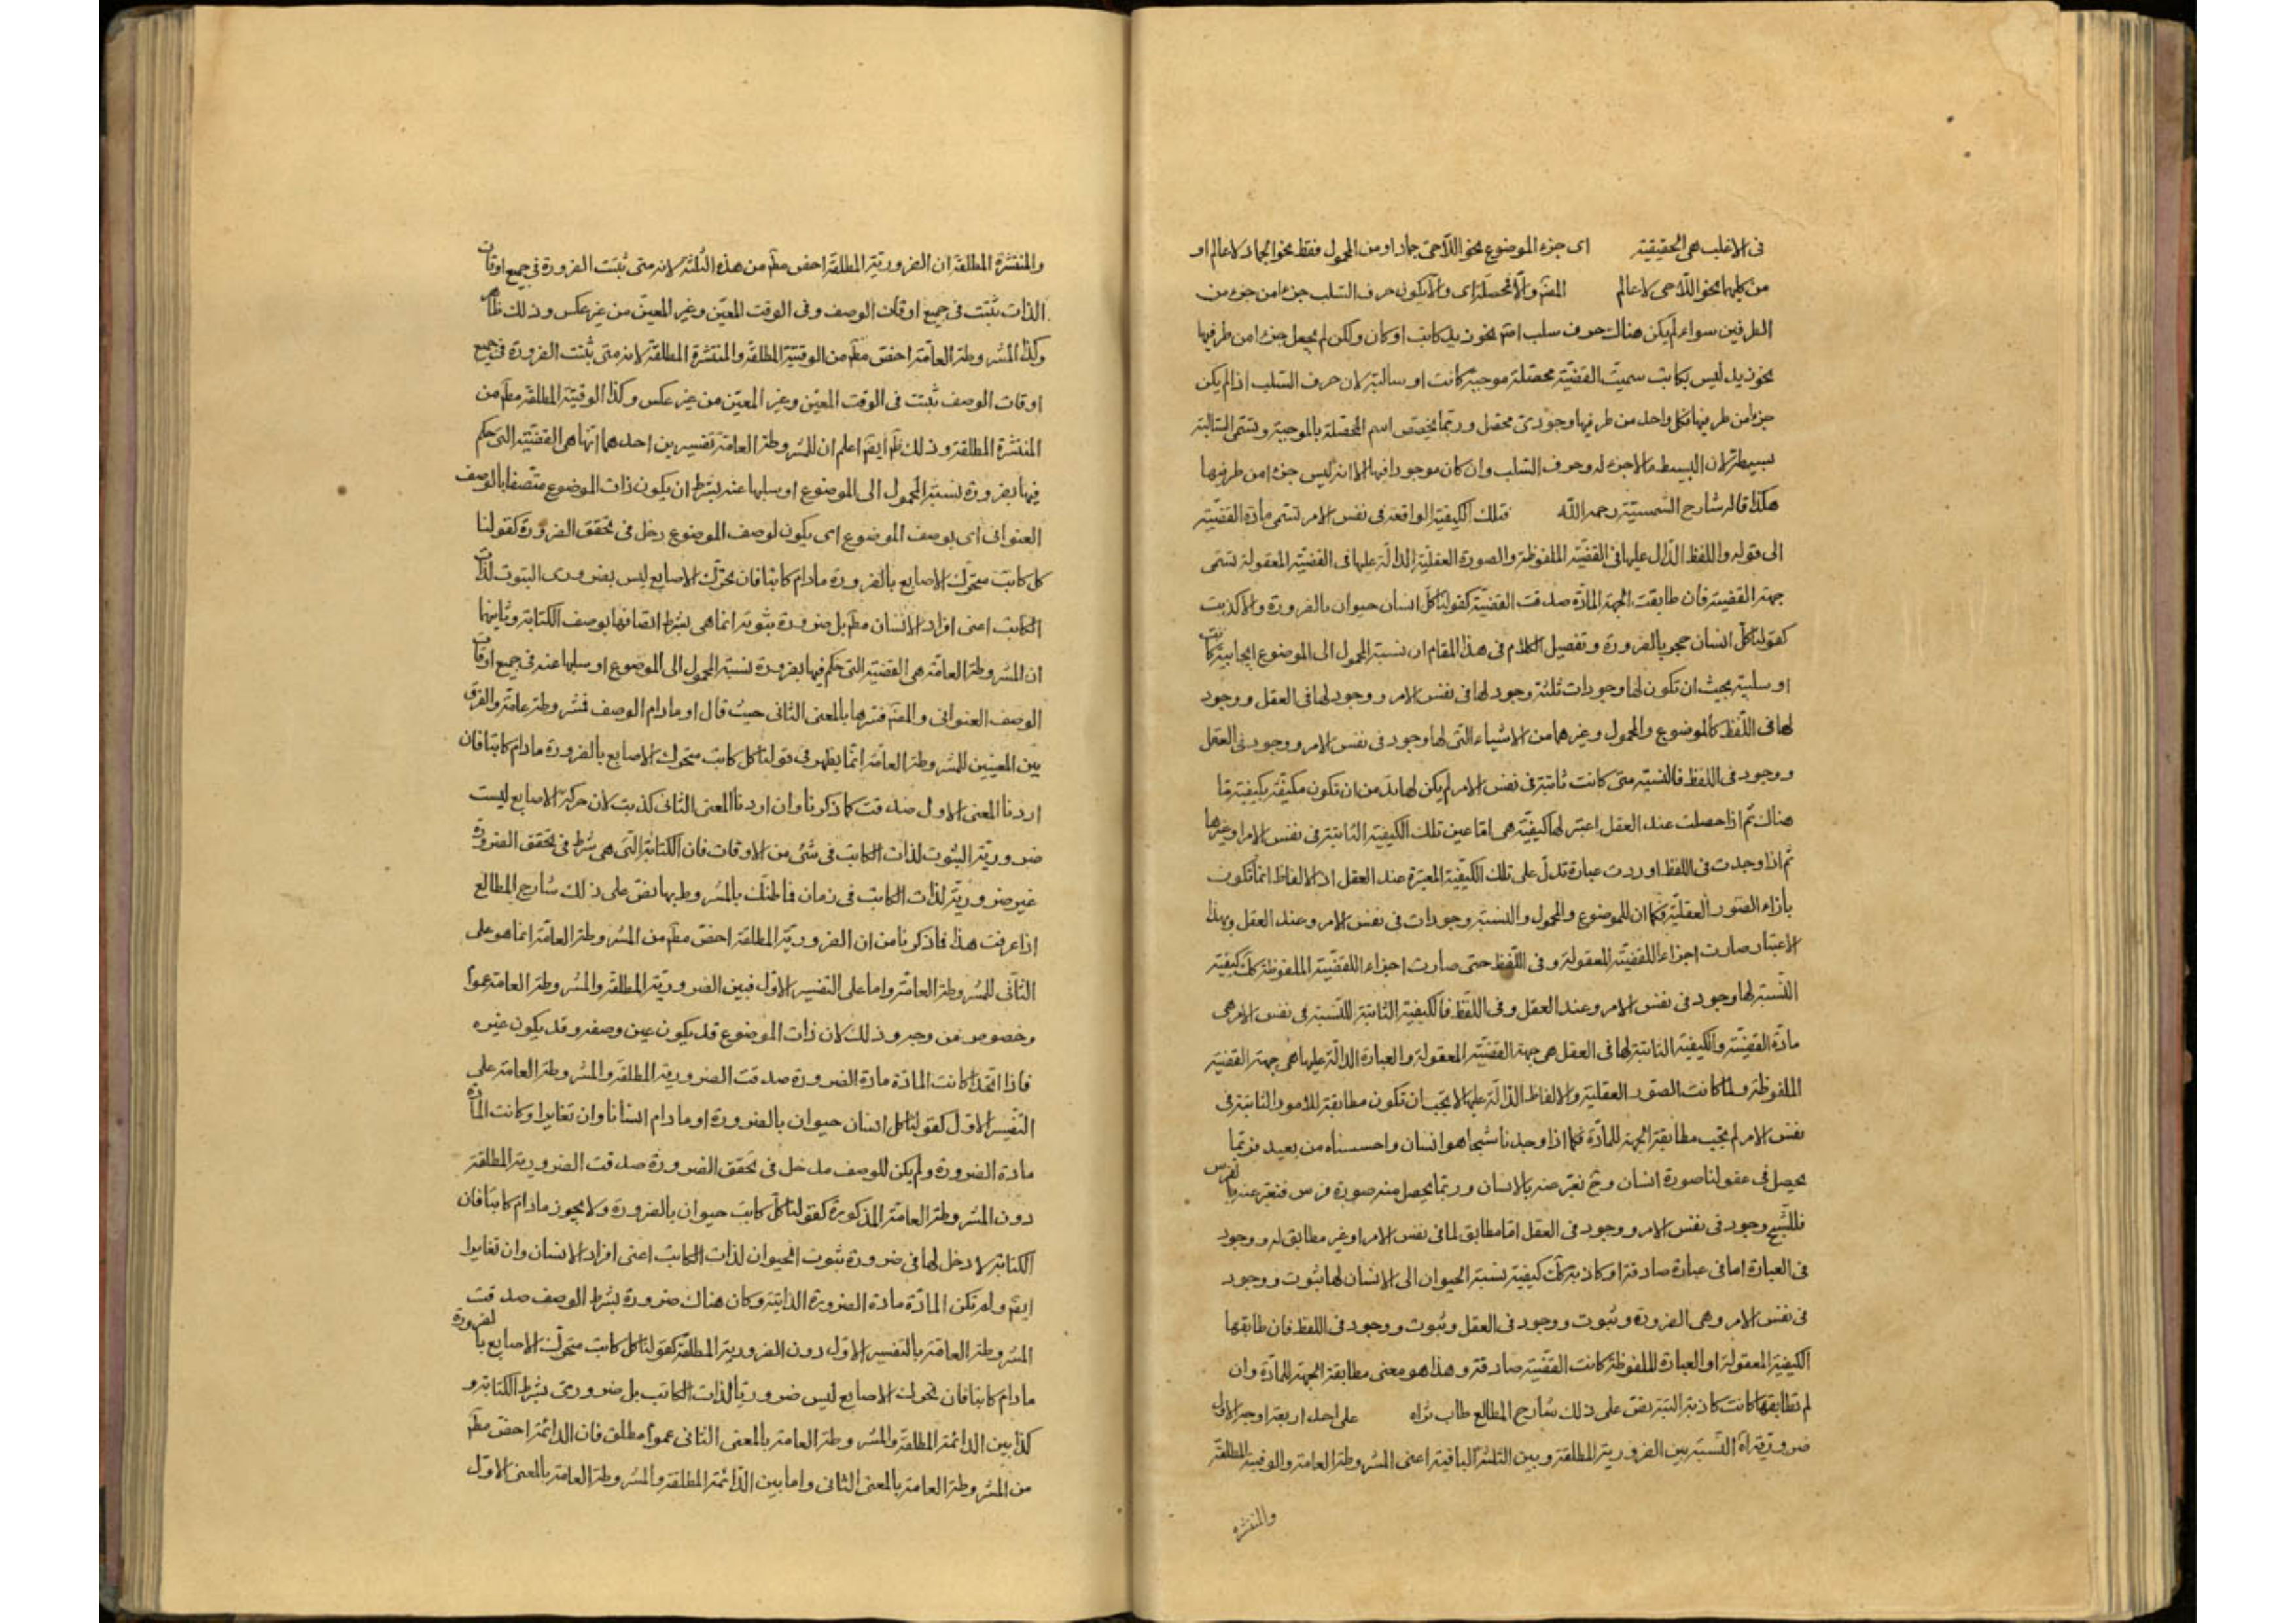 فى الاغلب هى الحقيقية اى جزء الموضوع نحو اللاحى جماد او من المحمول فقط نحو الجماد لا عالم او
من كليهما نحو اللاحى لا عالم المص والا فمحصلة اى والا يكون حرف السلب جزءا من جزء من
الطرفين سواء لم يكن هناك حرف سلب اصم نحو زيد كاتب او كان ولكن لم يجعل جزءا من طرفيها
نحو زيد ليس بكاتب سميت القضية محصلة موجبة كانت او سالبة لان حرف السلب اذا لم يكن
جزءا من طرفيها فكل واحد من طرفيها وجودى محصل وربما يخصص اسم المحصلة بالموجبة وتسمى السالبة
بسيطة لان البسيط ما لا جزء له وحرف السلب وان كان موجودا فيها الا انه ليس جزءا من طرفيها
هكذا قال شارح الشمسية رحمه الله فتلك الكيفية الواقعة فى نفس الامر تسمى مادة القضية
الى قوله واللفظ الدال عليها فى القضية الملفوظة والصورة العقلية الدالة عليها فى القضية المعقولة تسمى
جهة القضية فان طابقت الجهة المادة صدقت القضية كقولنا كل انسان حيوان بالضرورة والا كذبت
كقولنا كل انسان حجر بالضرورة وتفصيل الكلام فى هذا المقام ان نسبة المحمول الى الموضوع ايجابية كانت
او سلبية يجب ان تكون لها وجودات ثلثة وجود لها فى نفس الامر ووجود لها فى العقل ووجود
لها فى اللفظ كالموضوع والمحمول وغيرهما من الاشياء التى لها وجود فى نفس الامر ووجود فى العقل
ووجود فى اللفظ فالنسبة متى كانت ثابتة فى نفس الامر لم يكن لها بد من ان تكون مكيفة بكيفية ما
هناك ثم اذا حصلت عند العقل اعتبر لها كيفية هى اما عين تلك الكيفية الثابتة فى نفس الامر او غيرها
ثم اذا وجدت فى اللفظ اوردت عبارة تدل على تلك الكيفية المعتبرة عند العقل اذ الالفاظ انما تكون
بازاء الصور العقلية فكما ان للموضوع والمحمول والنسبة وجودات فى نفس الامر وعند العقل وبهذا
الاعتبار صارت اجزاء للقضية المعقولة وفى اللفظ حتى صارت اجزاء للقضية الملفوظة كك كيفية
النسبة لها وجود فى نفس الامر وعند العقل وفى اللفظ فالكيفية الثابتة للنسبة فى نفس الامر هى
مادة القضية والكيفية الثابتة لها فى العقل هى جهة القضية المعقولة والعبارة الدالة عليها هى جهة القضية
الملفوظة ولما كانت الصور العقلية والالفاظ الدالة عليها لا يجب ان تكون مطابقة للامور الثابتة فى
نفس الامر لم يجب مطابقة الجهة للمادة فكما اذا وجدنا شبحا هو انسان واحسسناه من بعيد فربما
يحصل فى عقولنا صورة انسان وح نعبر عنه بالانسان وربما يحصل منه صورة فرس فنعبر عنه بالفرس
فللشبح وجود فى نفس الامر ووجود فى العقل اما مطابق لما فى نفس الامر او غير مطابق له ووجود
فى العبارة اما فى عبارة صادقة او كاذبة كك كيفية نسبة الحيوان الى الانسان لها ثبوت ووجود
فى نفس الامر وهى الضرورة وثبوت ووجود فى العقل وثبوت ووجود فى اللفظ فان طابقها
الكيفية المعقولة او العبارة الملفوظة كانت القضية صادقة وهذا هو معنى مطابقة الجهة للمادة وان
لم تطابقها كانت كاذبة البتة نص على ذلك شارح المطالع طاب ثراه على احد اربعة اوجه الاول
ضرورية اه النسبة بين الضرورية المطلقة وبين الثلثة الباقية اعنى المشروطة العامة والوقتية المطلقة
والمنتشرة
والمنتشرة المطلقة ان الضرورية المطلقة اخص مطم من هذه الثلثة لانه متى ثبتت الضرورة فى جميع اوقات
الذات ثبتت فى جميع اوقات الوصف وفى الوقت المعين وغير المعين من غير عكس وذلك ظاهر
وكذا المشروطة العامة اخص مطم من الوقتية المطلقة والمنتشرة المطلقة لانه متى ثبتت الضرورة فى جميع
اوقات الوصف ثبتت فى الوقت المعين وغير المعين من غير عكس وكذا الوقتية المطلقة مطم من
المنتشرة المطلقة وذلك ظم ايضم اعلم ان للمشروطة العامة تفسيرين احدهما انها هى القضية التى حكم
فيها بضرورة نسبة المحمول الى الموضوع او سلبها عنه بشرط ان يكون ذات الموضوع متصفا بالوصف
العنوانى اى بوصف الموضوع اى يكون لوصف الموضوع دخل فى تحقق الضرورة كقولنا
كل كاتب متحرك الاصابع بالضرورة مادام كاتبا فان تحرك الاصابع ليس بضرورى الثبوت لذات
الكاتب اعنى افراد الانسان مطم بل ضرورة ثبوته انما هى بشرط اتصافها بوصف الكتابة وثانيهما
ان المشروطة العامة هى القضية التى حكم فيها بضرورة نسبة المحمول الى الموضوع او سلبها عنه فى جميع اوقات
الوصف العنوانى والمصم فسرها بالمعنى الثانى حيث قال او مادام الوصف فمشروطة عامة والفرق
بين المعنيين للمشروطة العامة انما يظهر فى قولنا كل كاتب متحرك الاصابع بالضرورة مادام كاتبا فان
اردنا المعنى الاول صدقت كما ذكرنا وان اردنا المعنى الثانى كذبت لان حركة الاصابع ليست
ضرورية الثبوت لذات الكاتب فى شئ من الاوقات فان الكتابة التى هى شرط فى تحقق الضرورة
غير ضرورية لذات الكاتب فى زمان فما ظنك بالمشروط بها نص على ذلك شارح المطالع
اذا عرفت هذا فما ذكرنا من ان الضرورية المطلقة اخص مطم من المشروطة العامة انما هو على
الثانى للمشروطة العامة واما على التفسير الاول فبين الضرورية المطلقة والمشروطة العامة عموم
وخصوص من وجه وذلك لان ذات الموضوع قد يكون عين وصفه وقد يكون غيره
فاذا اتحدا كانت المادة مادة الضرورة صدقت الضرورية المطلقة والمشروطة العامة على
التفسير الاول كقولنا كل انسان حيوان بالضرورة او مادام انسانا وان تغايرا وكانت المادة
مادة الضرورة ولم يكن للوصف مدخل فى تحقق الضرورة صدقت الضرورية المطلقة
دون المشروطة العامة المذكورة كقولنا كل كاتب حيوان بالضرورة ولا يجوز مادام كاتبا فان
الكتابة لا دخل لها فى ضرورة ثبوت الحيوان لذات الكاتب اعنى افراد الانسان وان تغايرا
ايضم ولم تكن المادة مادة الضرورة الذاتية وكان هناك ضرورة بشرط الوصف صدقت
المشروطة العامة بالتفسير الاول دون الضرورية المطلقة كقولنا كل كاتب متحرك الاصابع بالضرورة
مادام كاتبا فان تحرك الاصابع ليس ضروريا لذات الكاتب بل ضرورى بشرط الكتابة و
كذا بين الدائمة المطلقة والمشروطة العامة بالمعنى الثانى عموم مطلق فان الدائمة اخص مطم
من المشروطة العامة بالمعنى الثانى واما بين الدائمة المطلقة والمشروطة العامة بالمعنى الاول